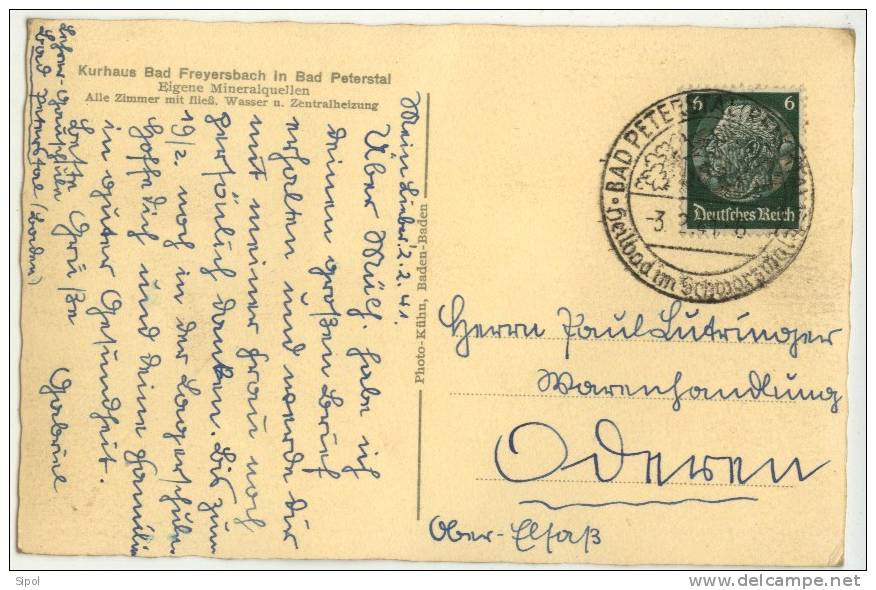 Kurhaus Bad Freyersbach in Bad Peterstal
Eigene Mineralquellen
Alle Zimmer mit fließ. Wasser u. Zentralheizung
Mein Lieber! 2.2.41.
Über Mülh. habe ich
deinen großen Brief
erhalten und werde dir
mit meiner Frau noch
persönlich danken. Bis zum
19/2. noch in der Lagerschule.
Hoffe dich und deine Familie
in guter Gesundheit.
Beste Grüße
Gabriel
Bad Peterstal (Baden)
Photo-Kühn, Baden-Baden
6 6
Deutsches Reich
BAD PETERSTAL
Heilbad im Schwarzwald
-3. 2. 41
Herrn Paul Lutringer
Warenhandlung
Oderen
Ober-Elsaß
Sipol
delcampe.net